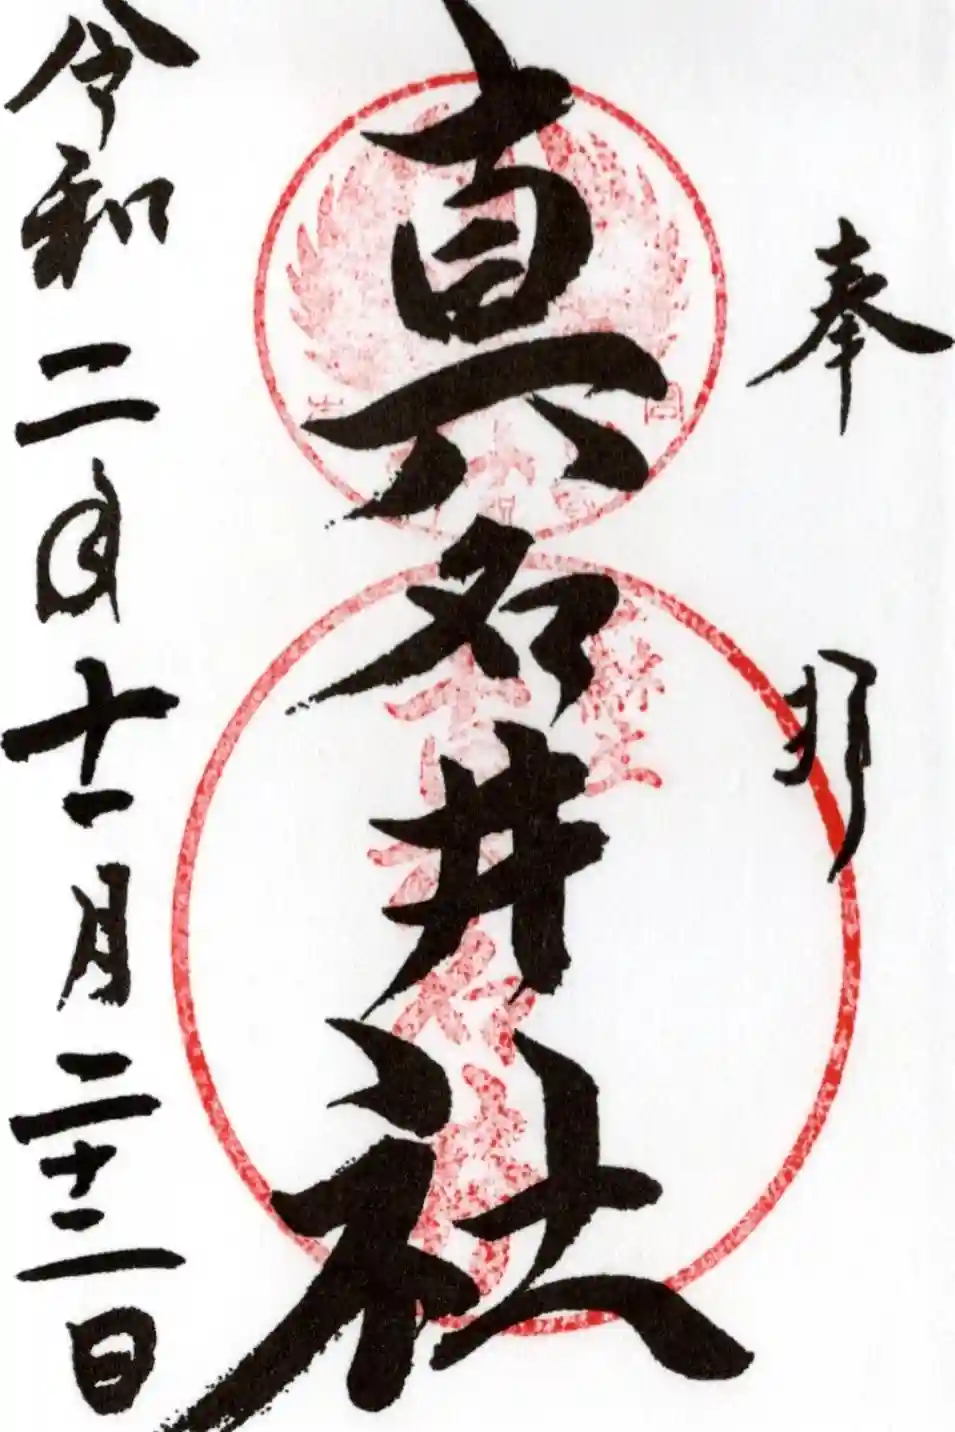 奉拝
真名井社
令和二年十一月二十二日